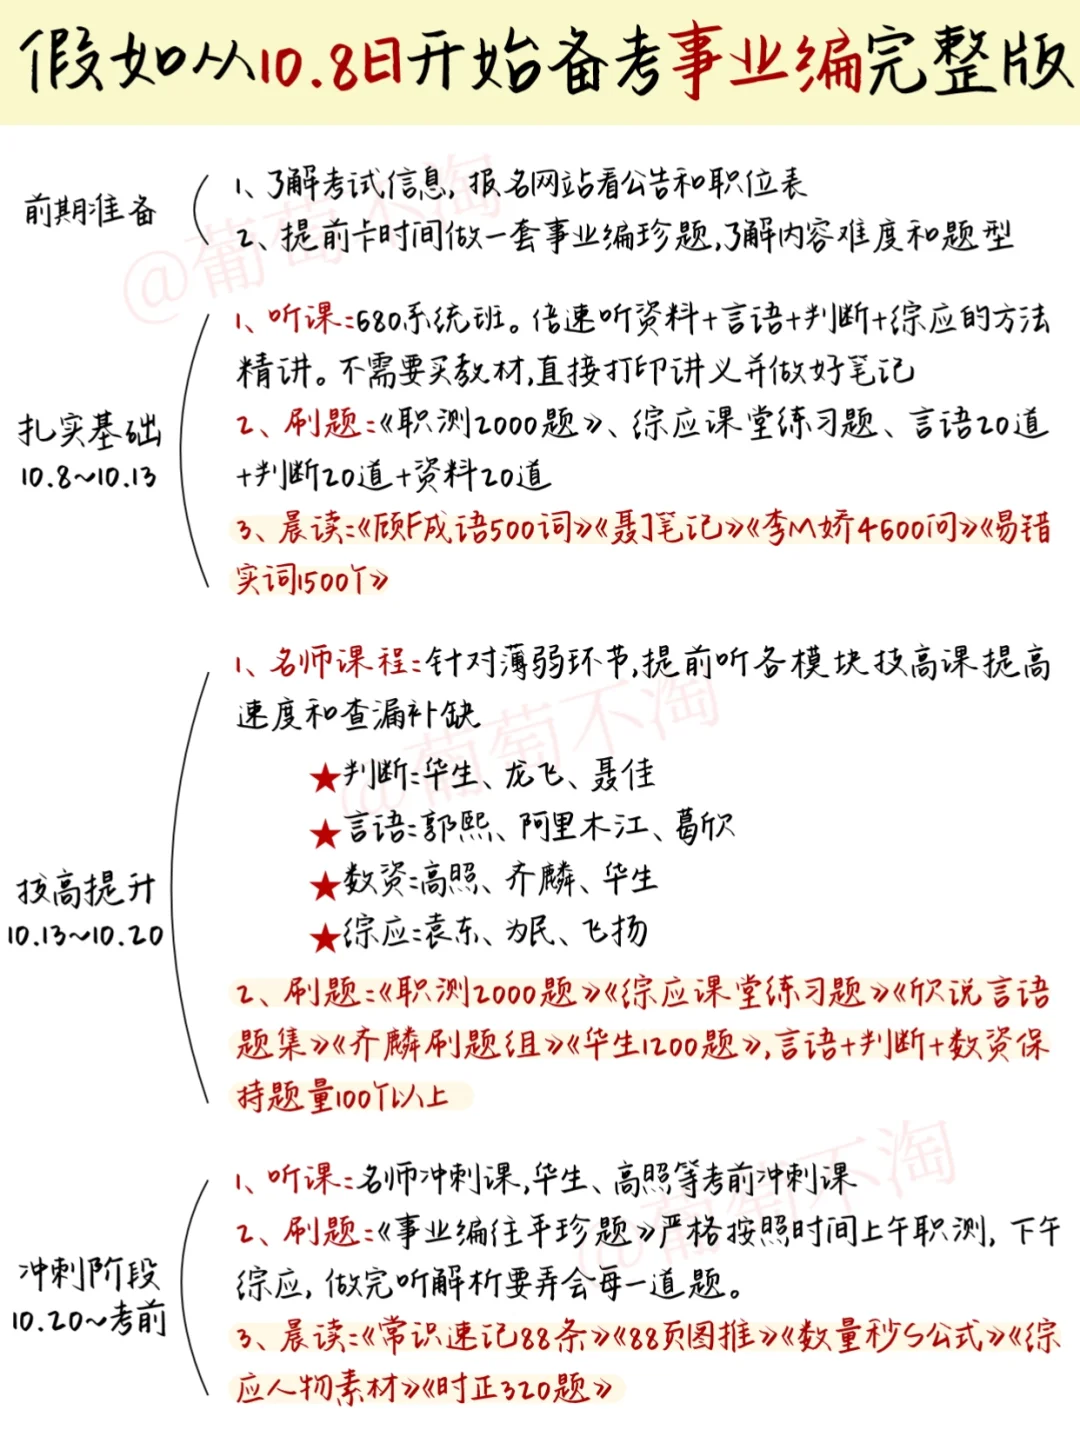 假如从10.8日开始备考事业编完整版
前期准备
1、了解考试信息, 报名网站看公告和职位表
2、提前卡时间做一套事业编珍题,了解内容难度和题型
扎实基础
10.8~10.13
1、听课:680系统班。倍速听资料+言语+判断+综应的方法
精讲。不需要买教材,直接打印讲义并做好笔记
2、刷题:《职测2000题》、综应课堂练习题、言语20道
+判断20道+资料20道
3、晨读:《顾F成语500词》《聂J笔记》《李M娇4600问》《易错
实词1500个》
技高提升
10.13~10.20
1、名师课程:针对薄弱环节,提前听各模块技高课提高
速度和查漏补缺
★判断:华生、龙飞、聂佳
★言语:郭熙、阿里木江、葛欣
★数资:高照、齐麟、华生
★综应:袁东、为民、飞扬
2、刷题:《职测2000题》《综应课堂练习题》《欣说言语
题集》《齐麟刷题组》《华生1200题》,言语+判断+数资保
持题量100个以上
冲刺阶段
10.20~考前
1、听课:名师冲刺课,华生、高照等考前冲刺课
2、刷题:《事业编往年珍题》严格按照时间上午职测, 下午
综应, 做完听解析要弄会每一道题。
3、晨读:《常识速记88条》《88页图推》《数量秒S公式》《综
应人物素材》《时正320题》
@葡萄不淘
@葡萄不淘
@葡萄不淘